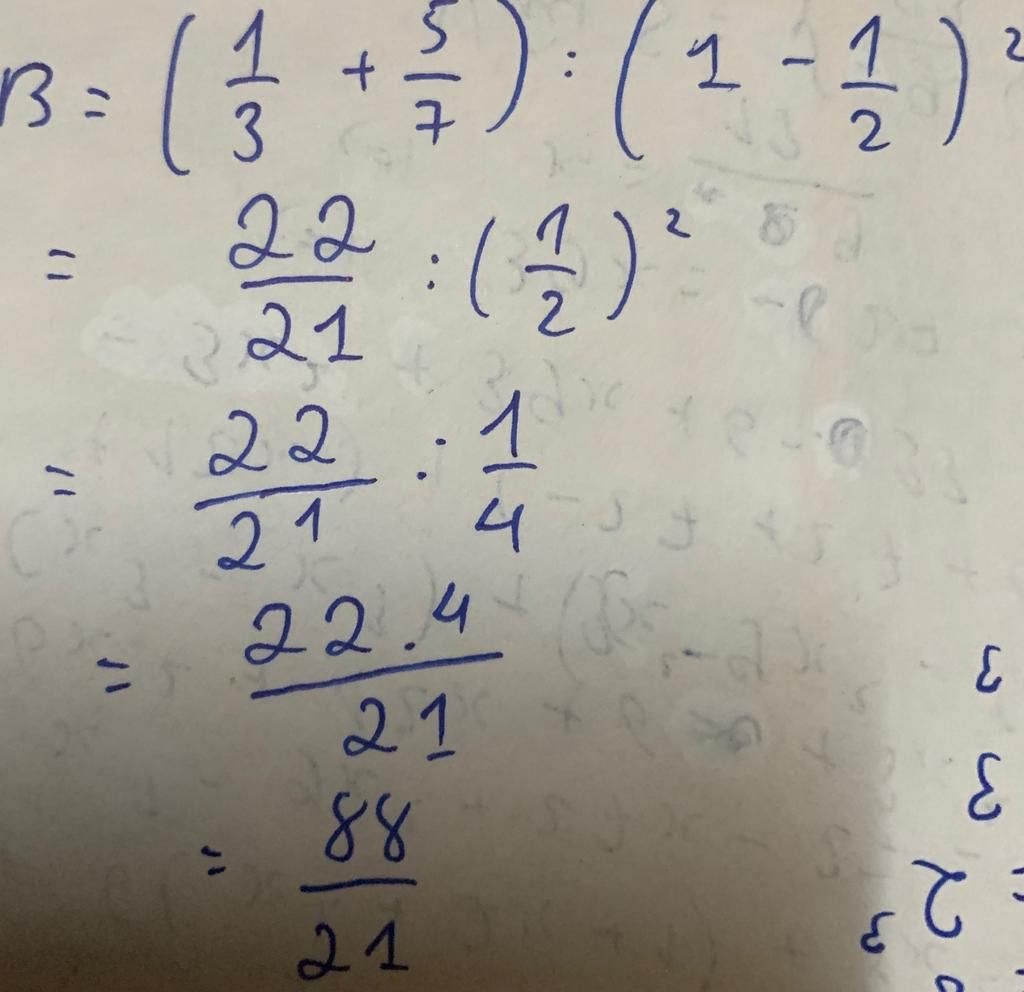 B = (1/3 + 5/7) : (1 - 1/2)²
= 22/21 : (1/2)²
= 22/21 : 1/4
= 22.4/21
= 88/21